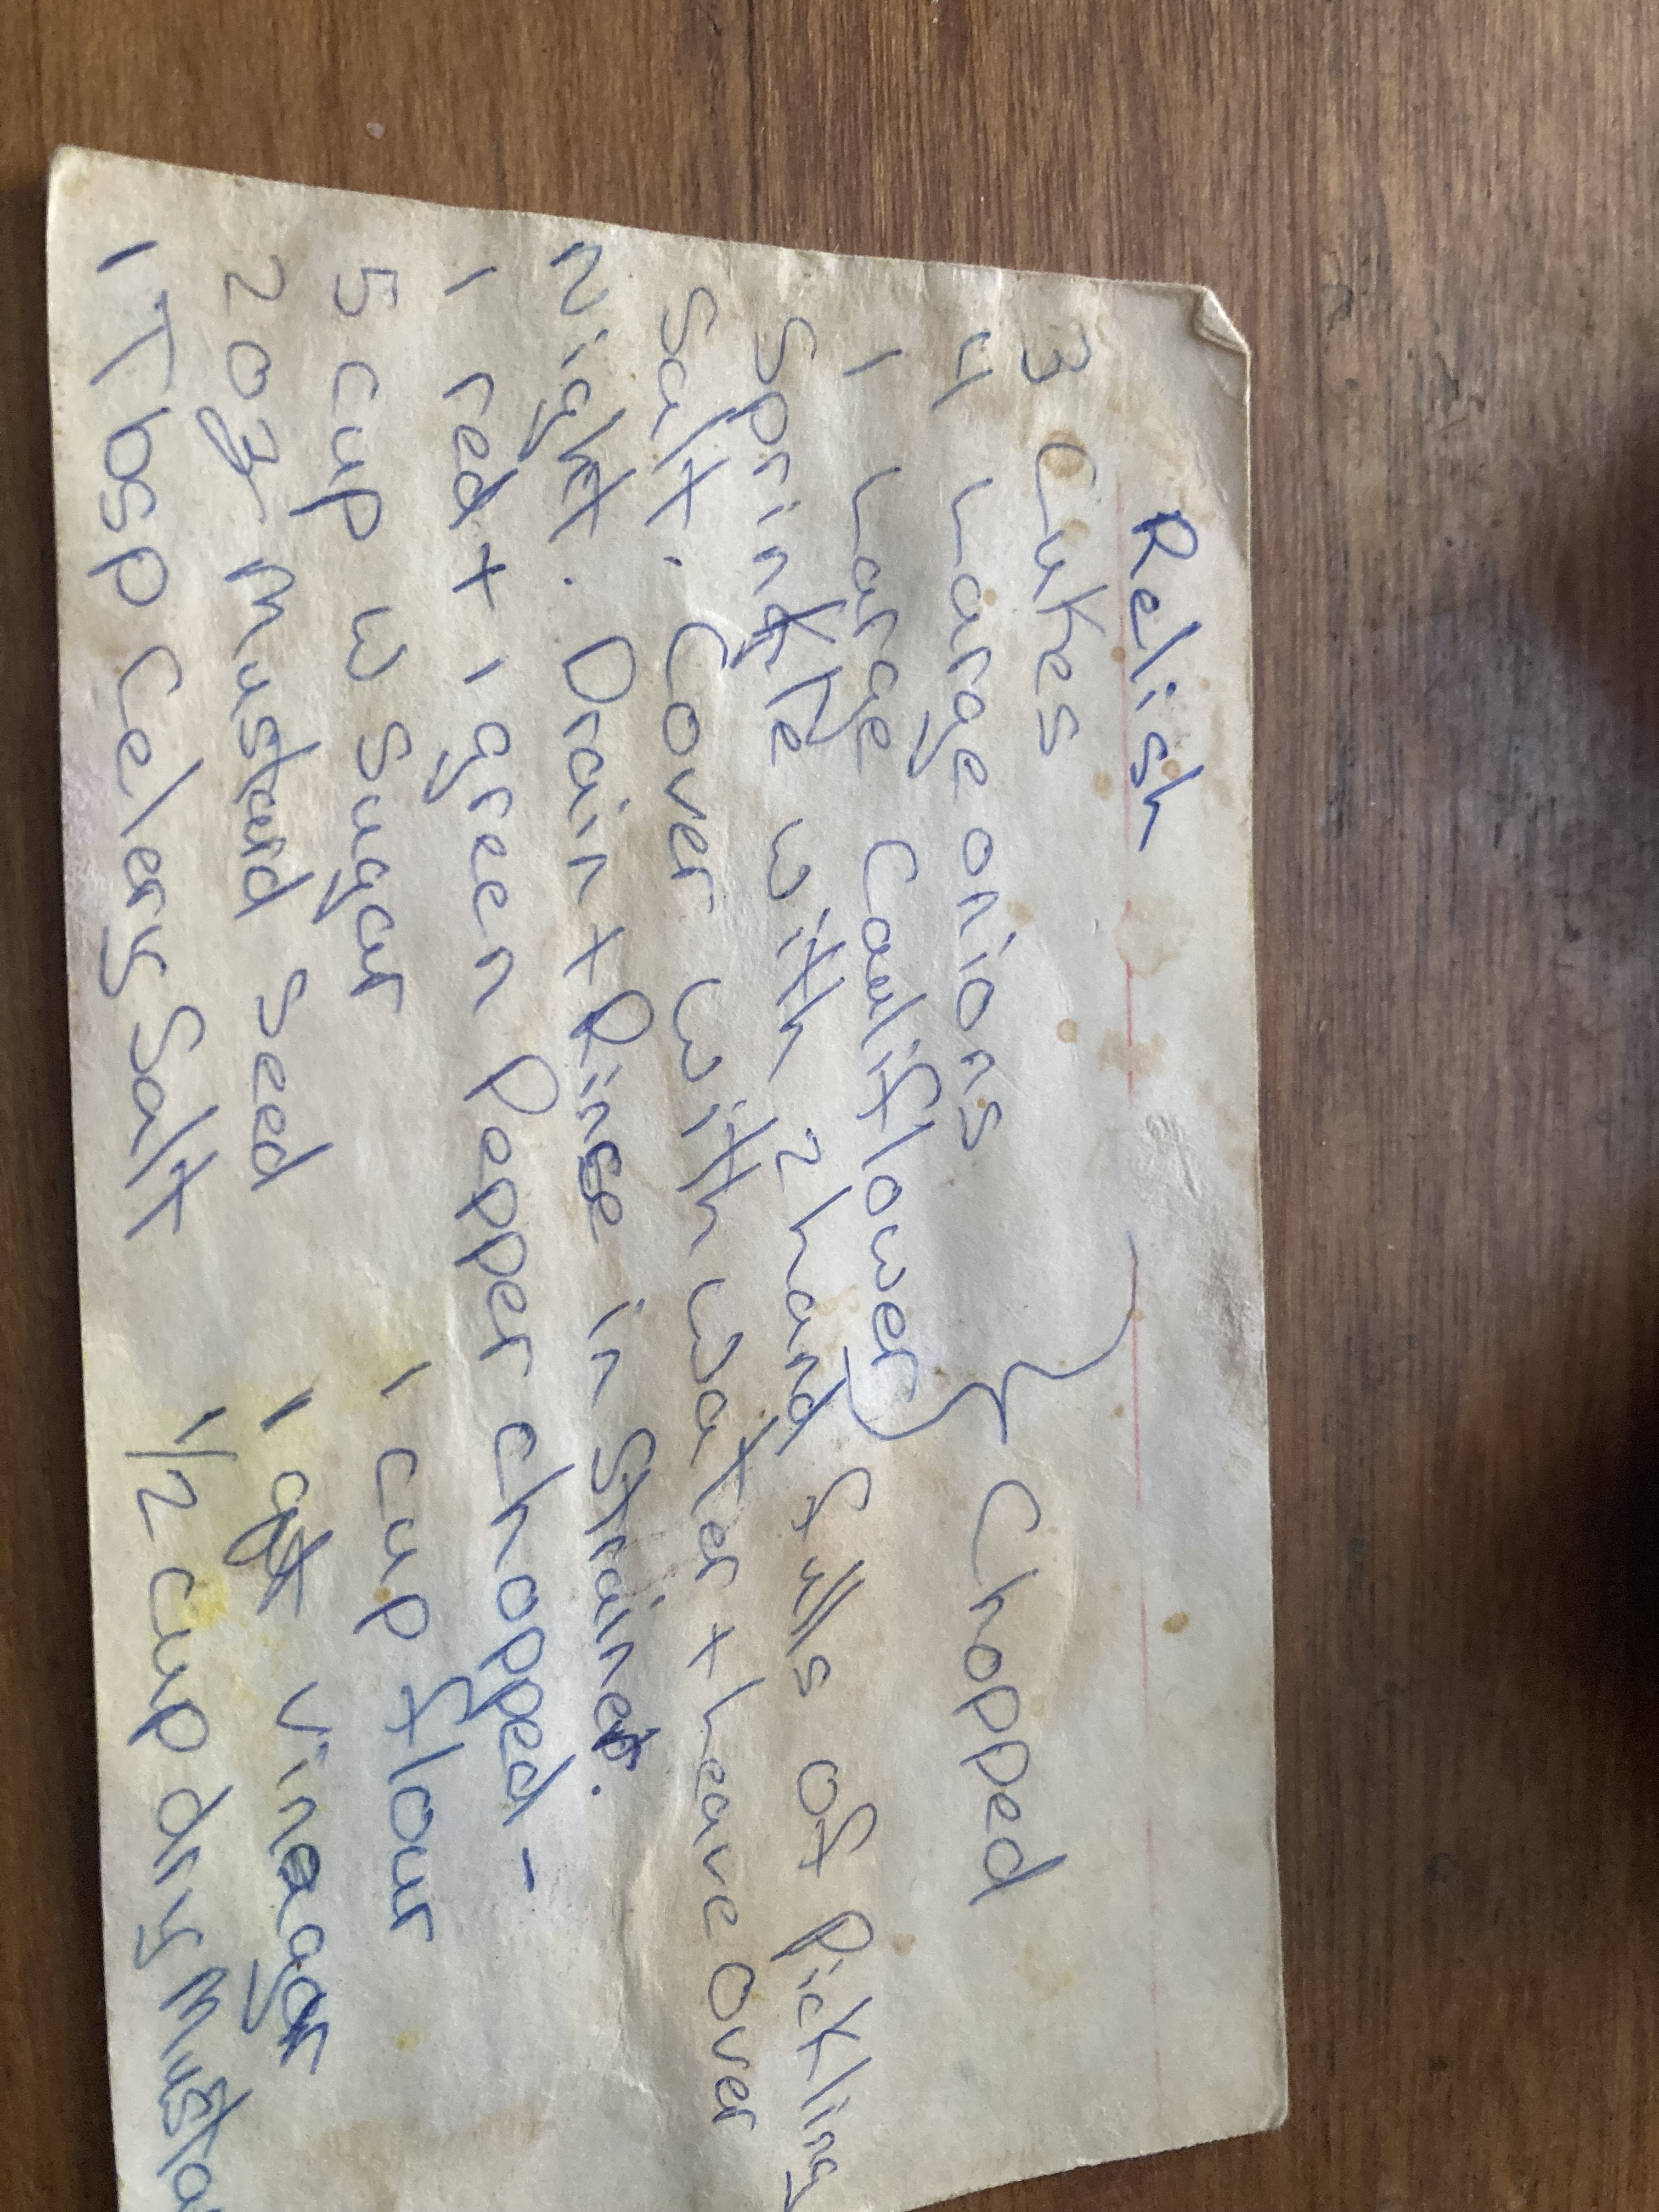 Relish
3 Cukes
4 Large onions } Chopped
1 Large Cauliflower
Sprinkle with 2 hand fulls of Pickling
Salt. Cover with water + Leave Over
Night. Drain + Rince in Strainer.
1 red + 1 green Pepper chopped -
5 cup w sugar 1 cup flour
2 oz Mustard Seed 1 qt vinagar
1 Tbsp Celery Salt 1/2 cup dry Musta